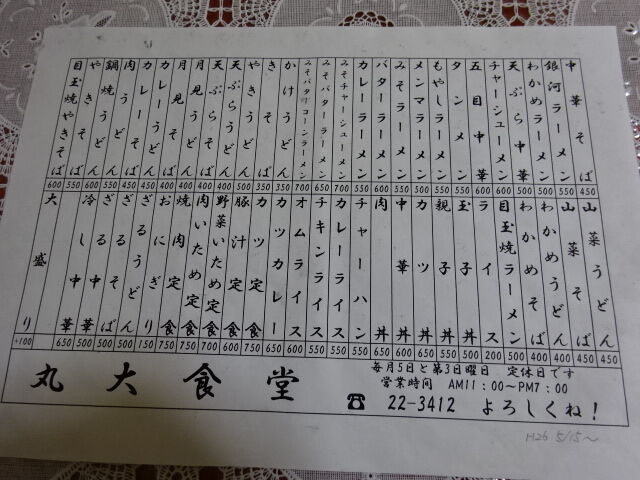 中華そば 450
銀河ラーメン 550
わかめラーメン 500
天ぷら中華 500
チャーシューメン 600
五目中華 600
タンメン 550
もやしラーメン 550
メンマラーメン 500
みそラーメン 600
バターラーメン 550
カレーラーメン 550
みそチャーシューメン 700
みそバターラーメン 650
みそバターコーンラーメン 700
かけうどん 350
かけそば 350
天ぷらうどん 500
天ぷらそば 450
月見うどん 400
月見そば 400
カレーうどん 450
カレーそば 450
肉うどん 550
鍋焼うどん 600
やきそば 550
目玉焼やきそば 600
山菜うどん 450
山菜そば 450
わかめうどん 400
わかめそば 400
目玉焼ラーメン 500
ライス 200
玉子丼 500
親子丼 550
カツ丼 650
中華丼 600
肉丼 600
チャーハン 550
カレーライス 550
チキンライス 550
オムライス 600
カツカレー 650
カツ定食 750
豚汁定食 600
野菜いため定食 700
肉いため定食 750
焼肉定食 750
おにぎり 150
ざるうどん 500
ざるそば 500
ざる中華 500
冷し中華 650
大盛り +100
丸大食堂
毎月5日と第3日曜日 定休日です
営業時間 AM11:00～PM7:00
☎ 22-3412 よろしくね!
H26 5/15～